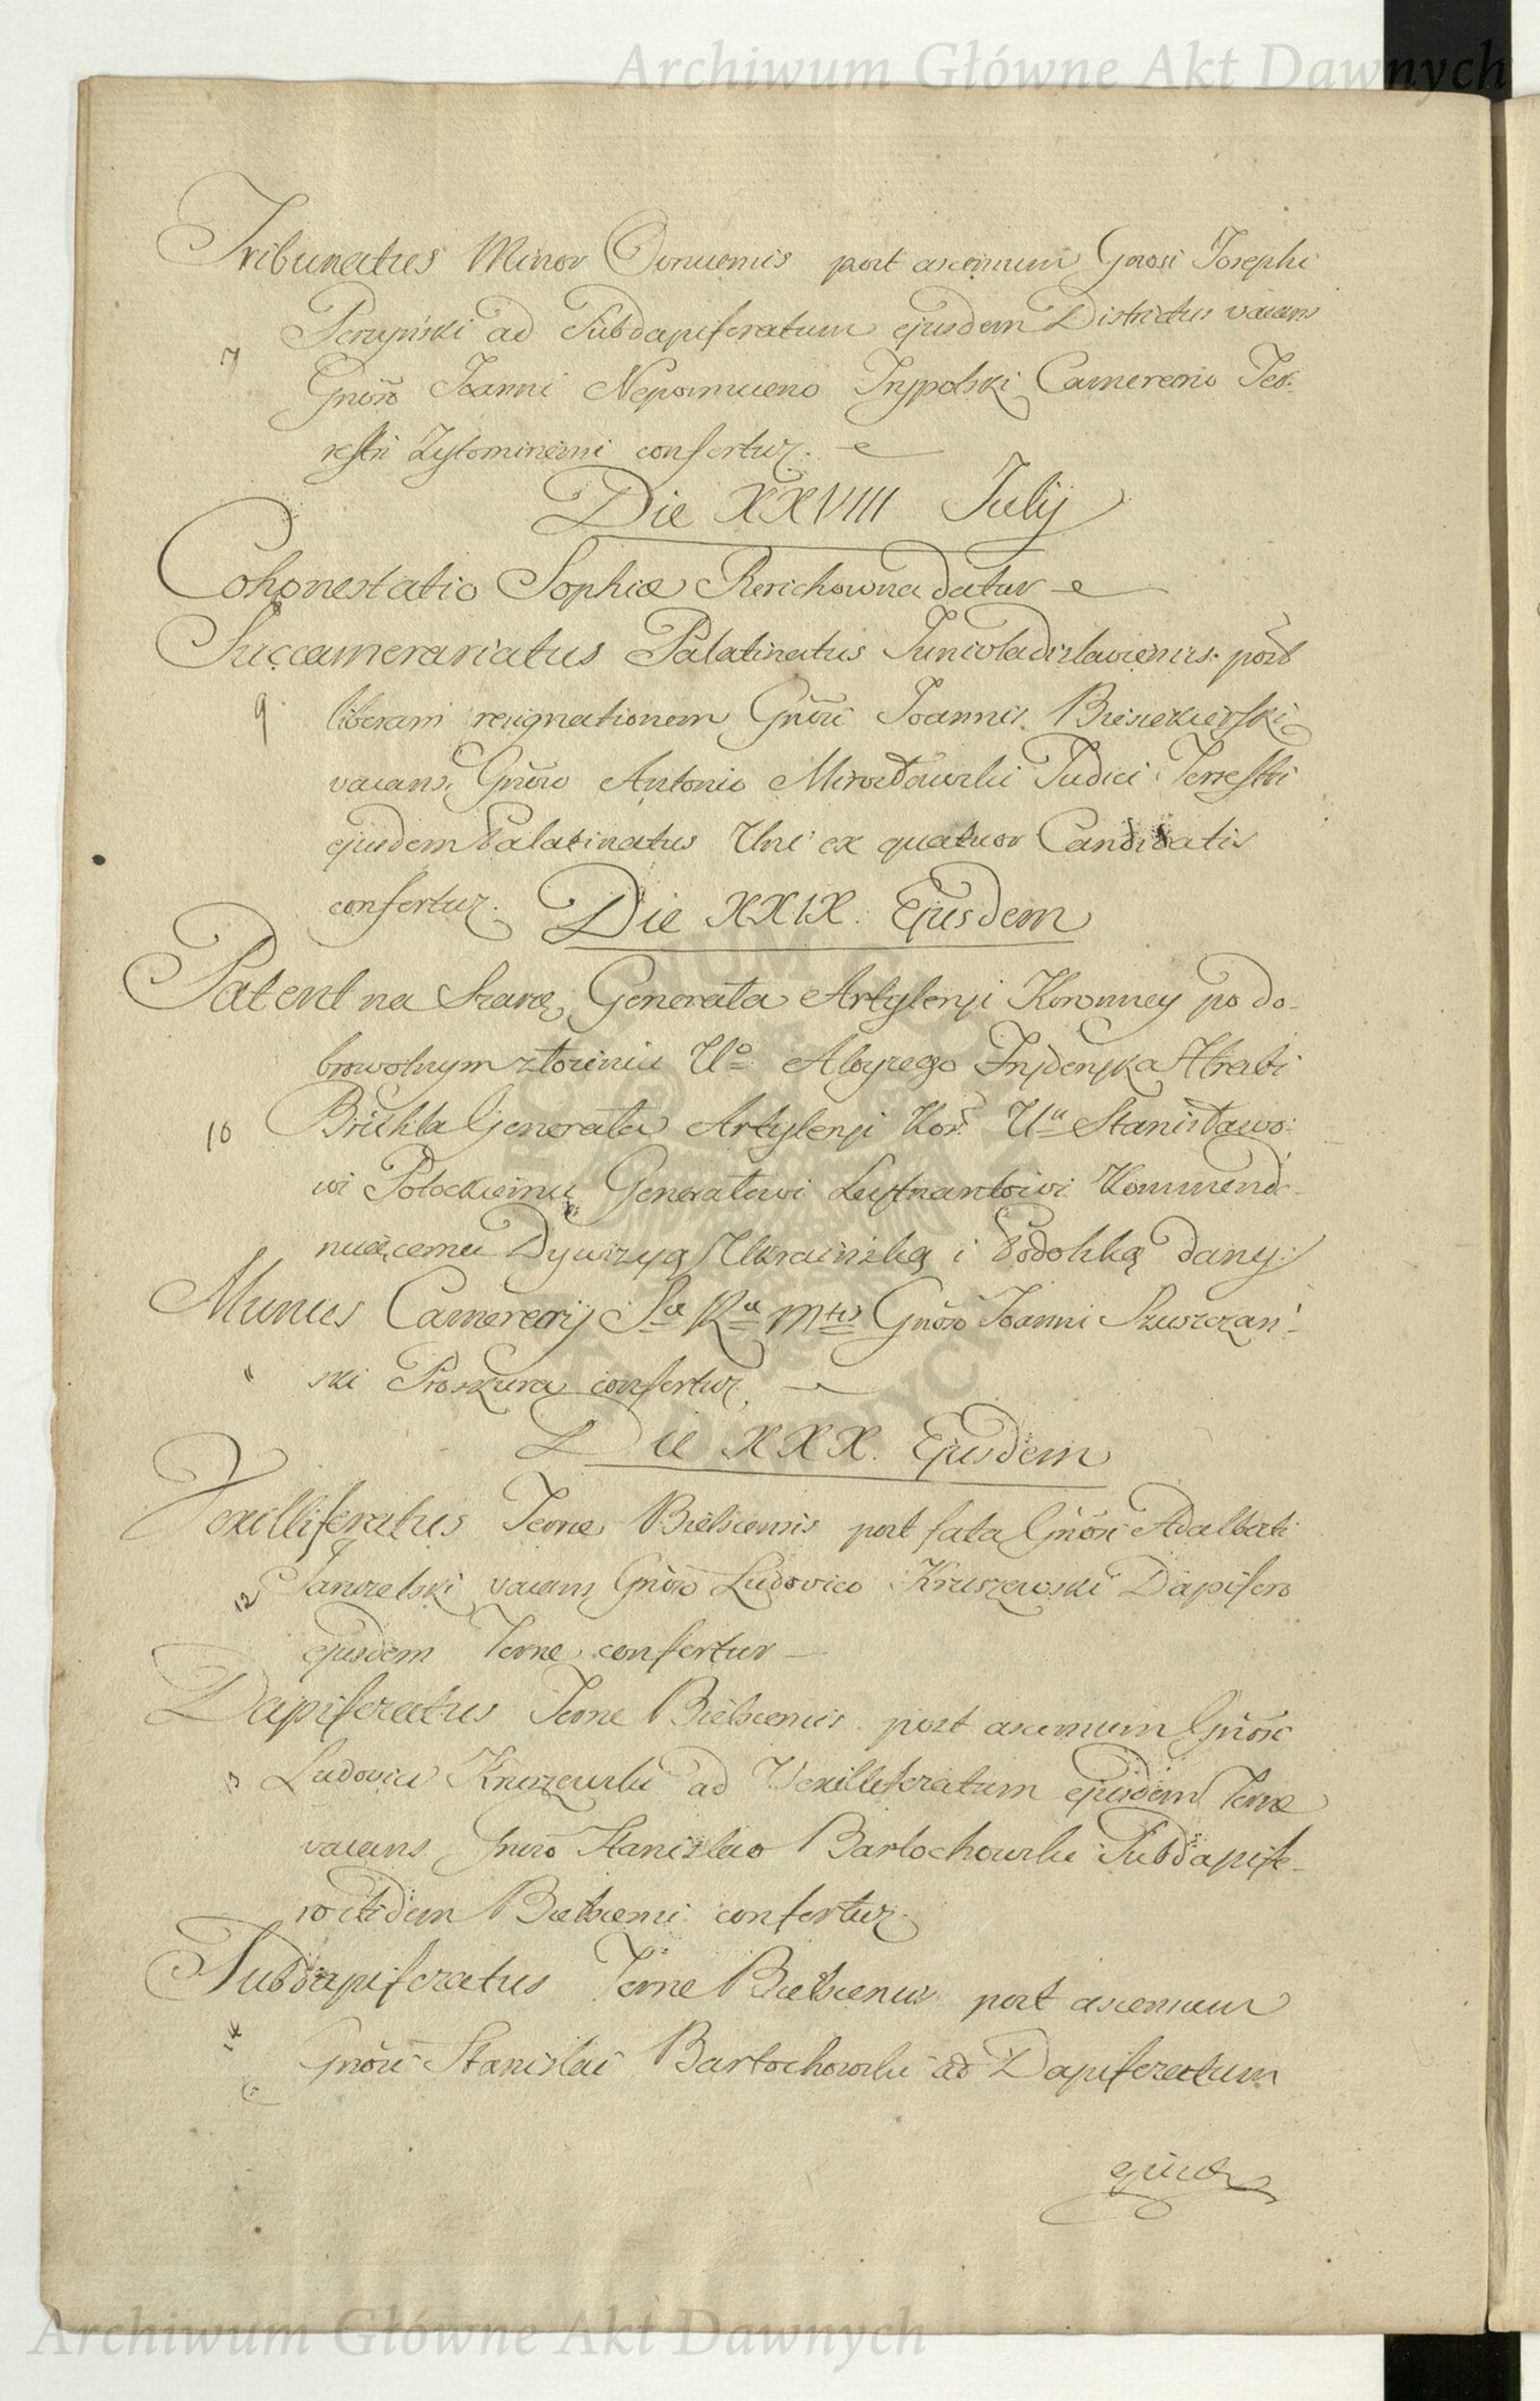 Archiwum Główne Akt Dawnych
Tribunatus Minor Owrucensis post ascensum Gnosi Josephi
Perzyński ad Subdapiferatum ejusdem Districtus vacans
7
Gnoso Joanni Nepomuceno Trypolski Camerario Ter:
restri Zytomiriensi confertur.
Die XXVIII July
Cohonestatio Sophiæ Rerichowna datur
8
Succamerariatus Palatinatus Juniwladislaviensis post
9 liberam resignationem Gnosi Joannis Biesiekierski
vacans, Gnoso Antonio Mirosławski Judici Terrestri
ejusdem Palatinatus Uni ex quatuor Candidatis
confertur. Die XXIX. Ejusdem
Patent na Szarżę Generała Artyleryi Koronney po do-
browolnym złożeniu Uo Aloyzego Fryderyka Hrabi
10 Brühla Generała Artyleryi Kor. Uu Stanisławo:
wi Potockiemu Generałowi Leytnantowi Kommende-
ruiącemu Dywizyą Ukraińską i Podolską dany.
Munus Camerarij Sæ Ræ Mtis Gnoso Joanni Szuszczań-
" ski Proskura confertur
Die XXX. Ejusdem
Vexilliferatus Terræ Bielscensis post fata Gnosi Adalberti
12 Jarużelski vacans Gnoso Ludovico Kruszewski Dapifero
ejusdem Terræ confertur
Dapiferatus Terræ Bielscensis post ascensum Gnosi
13 Ludovici Kruszewski ad Vexilliferatum ejusdem Terræ
vacans Gnoso Stanislao Bartochowski Subdapife-
ro itidem Bielscensi confertur.
Subdapiferatus Terræ Bielscensis post ascensum
14
Gnosi Stanislai Bartochowski ad Dapiferatum
Archiwum Główne Akt Dawnych